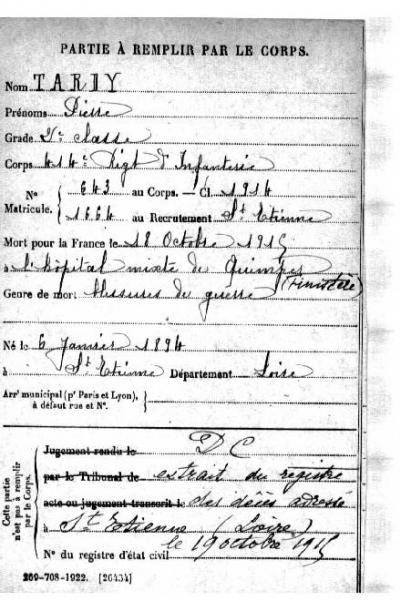 PARTIE À REMPLIR PAR LE CORPS.
Nom TARDY
Prénoms Pierre
Grade 2e classe
Corps 414e Rigt d'Infanterie
N° 643 au Corps. — Cl. 1914
Matricule. 1664 au Recrutement St Etienne
Mort pour la France le 18 Octobre 1915
à l'hôpital mixte de Quimper
(Finistère)
Genre de mort blessures de guerre
Né le 6 Janvier 1894
à St Etienne Département Loire
Arrt municipal (pr Paris et Lyon),
à défaut rue et N°.
Cette partie
n'est pas à remplir
par le Corps.
Jugement rendu le D C
par le Tribunal de extrait du registre
acte ou jugement transcrit le des décès adressé
à St Etienne (Loire)
le 19 octobre 1915
N° du registre d'état civil
269-708-1922. [26434]